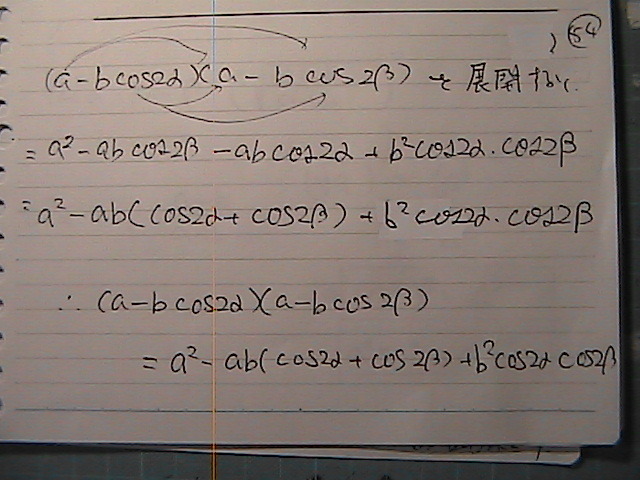 64
(a-bcos2α)(a-bcos2β) を展開すれば
=a²-abcos2β-abcos2α+b²cos2α·cos2β
=a²-ab(cos2α+cos2β)+b²cos2α·cos2β
∴ (a-bcos2α)(a-bcos2β)
=a²-ab(cos2α+cos2β)+b²cos2α cos2β